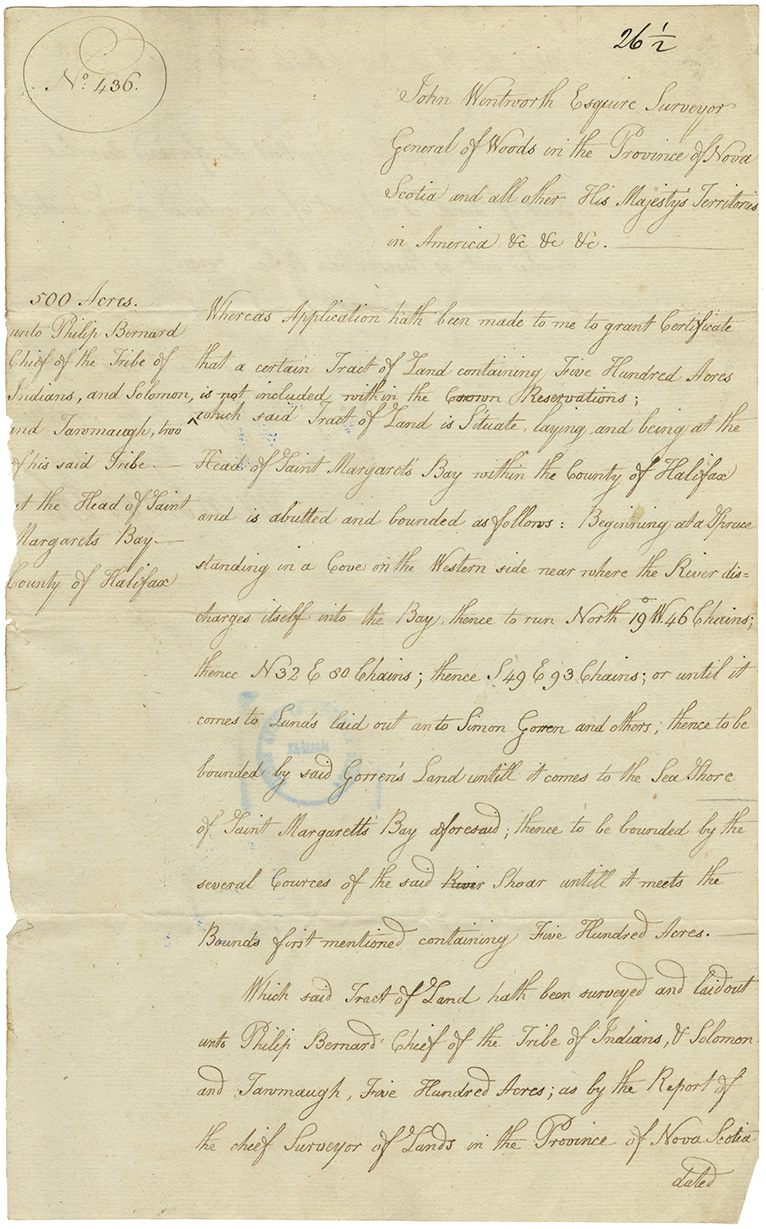 26 1/2
No. 436.
John Wentworth Esquire Surveyor
General of Woods in the Province of Nova
Scotia and all other His Majesty's Territories
in America &c &c &c.
500 Acres.
unto Philip Bernard
Chief of the Tribe of
Indians, and Solomon,
and Tawmaugh, two
of his said Tribe —
at the Head of Saint
Margarets Bay —
County of Halifax
Whereas Application hath been made to me to grant Certificate
that a certain Tract of Land containing Five Hundred Acres
is not included within the Crown Reservations;
^ which said Tract of Land is Situate, laying and being at the
Head of Saint Margaret's Bay within the County of Halifax
and is abutted and bounded as follows: Beginning at a Spruce
standing in a Cove on the Western side near where the River dis=
charges itself into the Bay, thence to run North 19° W. 46 Chains;
thence N 32 E 80 Chains; thence S 49 E 93 Chains; or until it
comes to Lands laid out unto Simon Gorren and others; thence to be
bounded by said Gorren's Land untill it comes to the Sea Shore
of Saint Margarett's Bay aforesaid; thence to be bounded by the
several Cources of the said River Shoar untill it meets the
Bounds first mentioned containing Five Hundred Acres. —
Which said Tract of Land hath been surveyed and laid out
unto Philip Bernard Chief of the Tribe of Indians, & Solomon
and Tawmaugh, Five Hundred Acres; as by the Report of
the chief Surveyor of Lands in the Province of Nova Scotia
dated